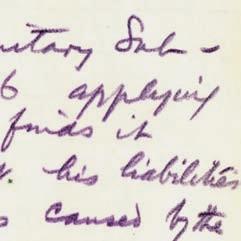 Sub-
6 applying
finds it
his liabilities
caused by the